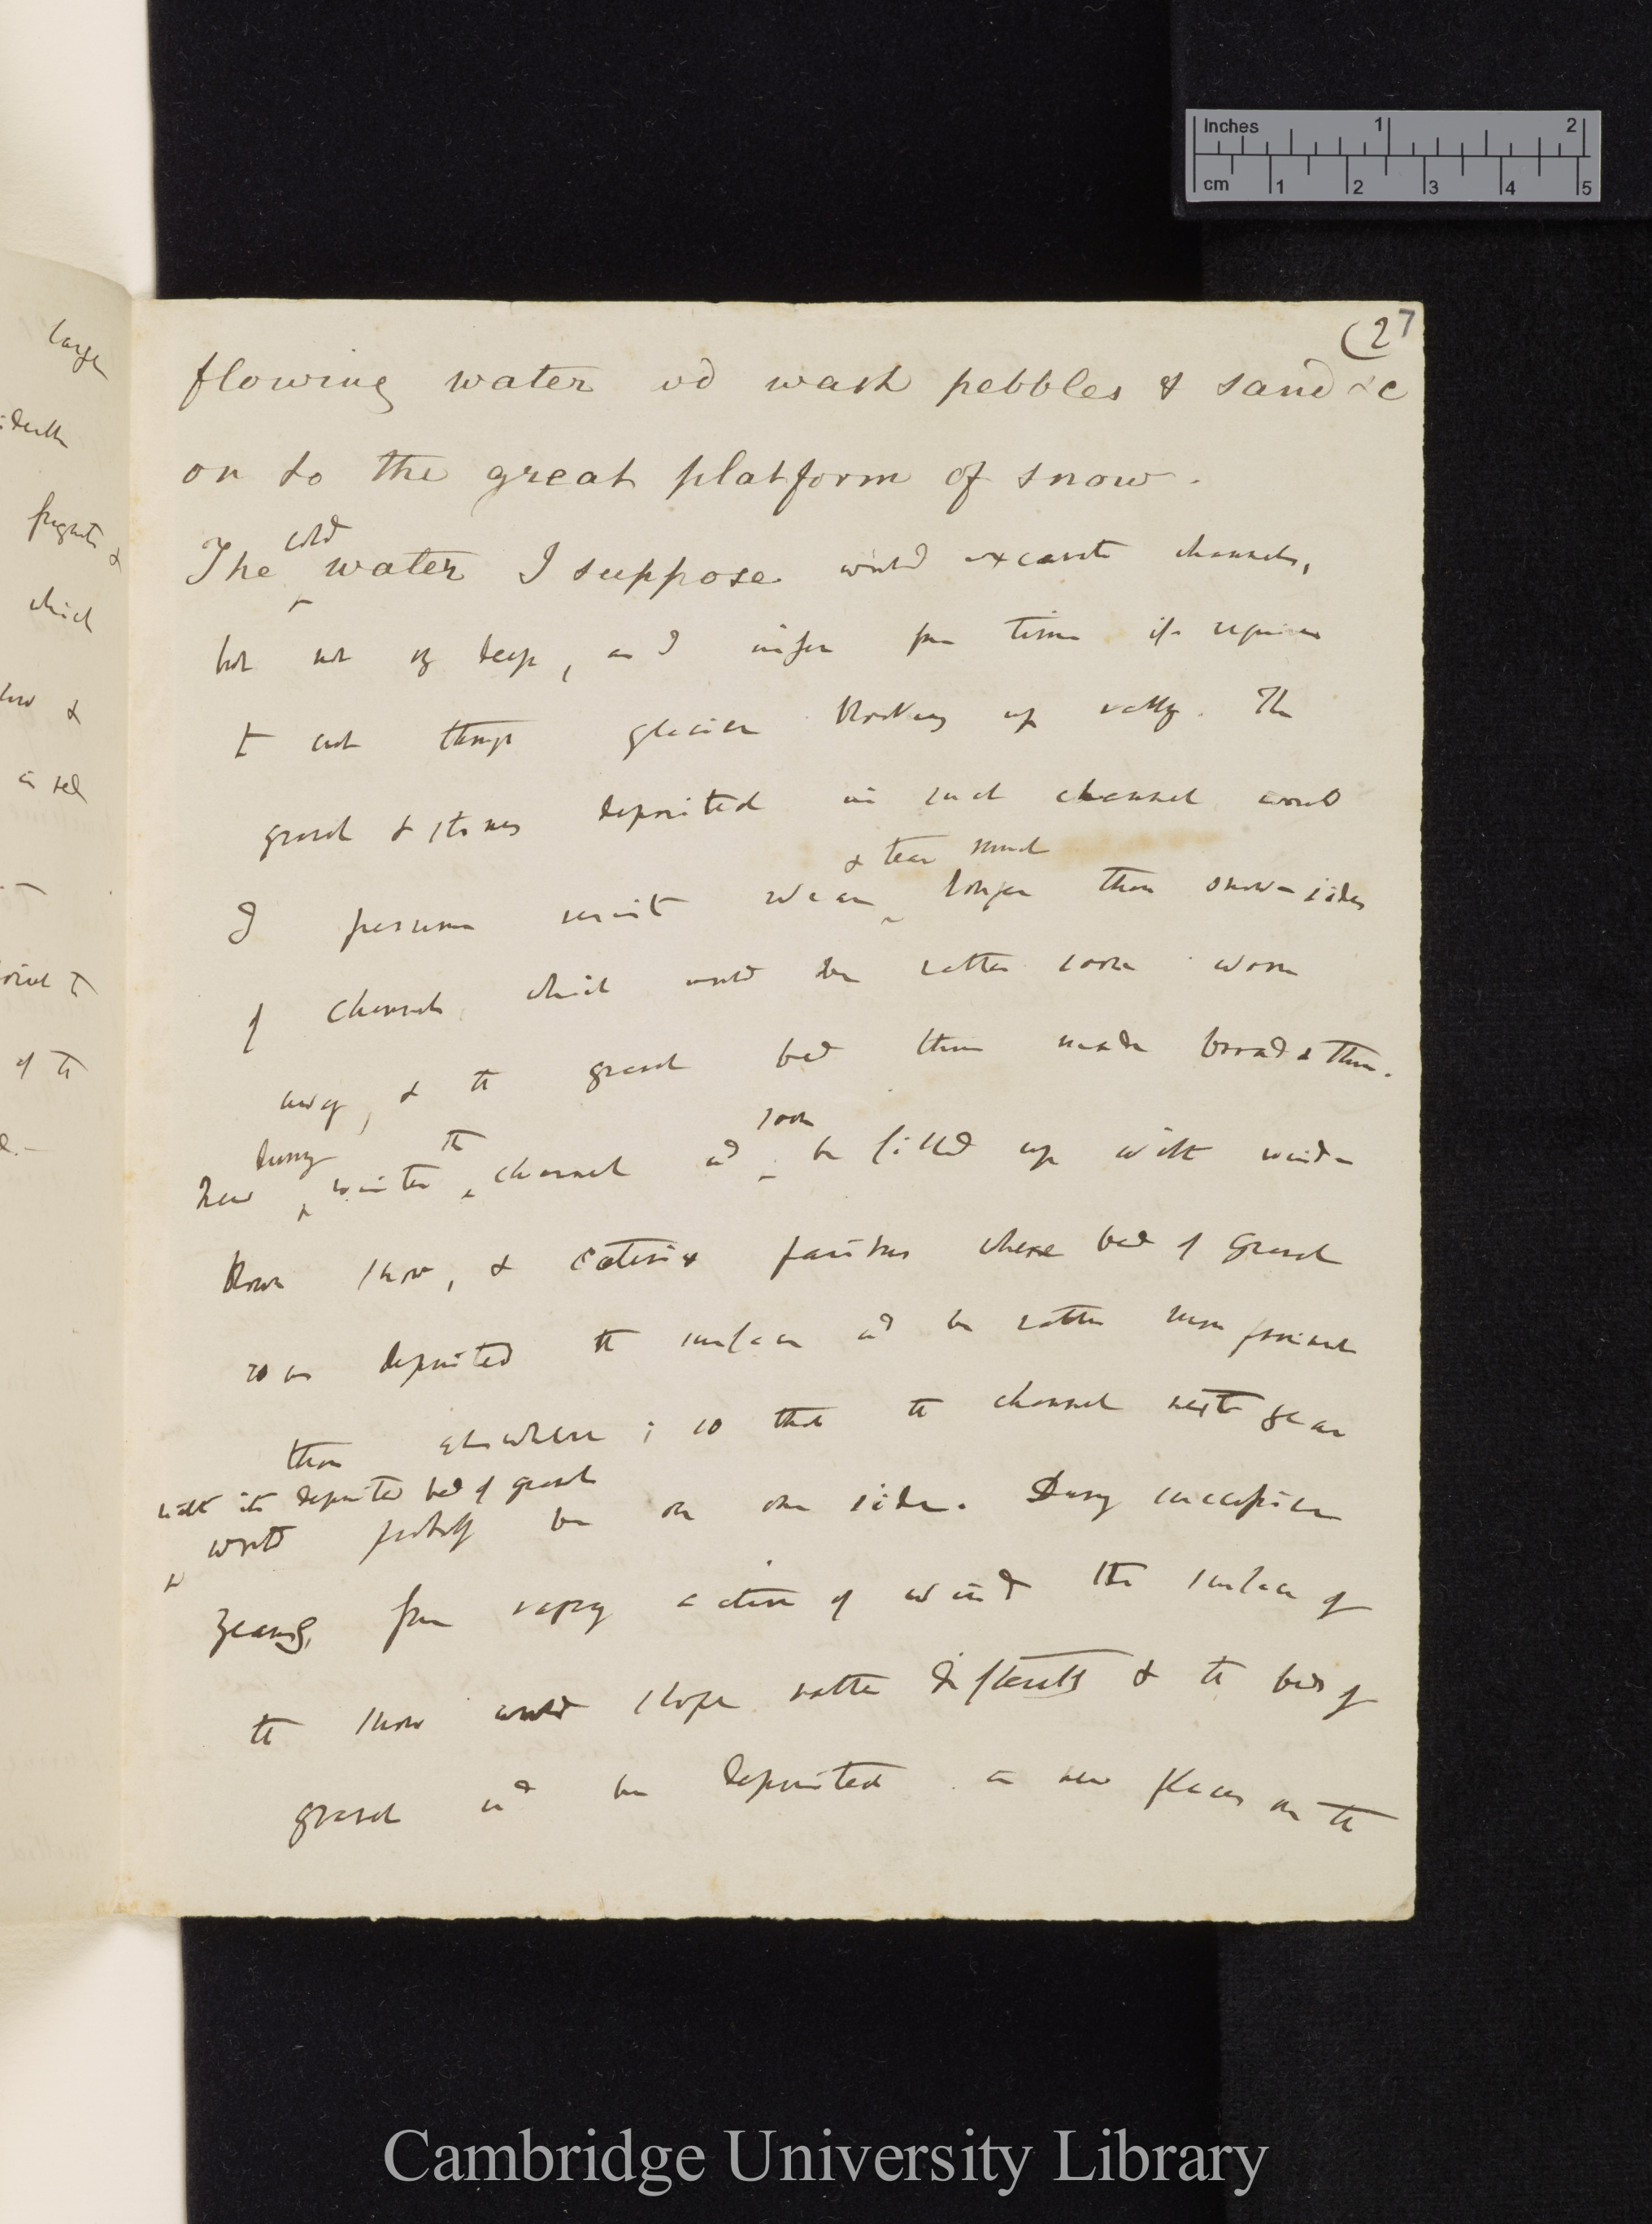 Inches 1 2
cm 1 2 3 4 5
(2
7
large
fragments &
which
& 
of the
flowing water wd wash pebbles & sand &c
on to the great platform of snow.
cold
The water I suppose would excavate channels,
but not vy deep, as I infer from time it requires
to cut through glacier blocking up valley. The
gravel & stones deposited in such channel would
& tear much
I presume resist wear longer than snow-sides
of channels which would be rather soon worn
away, & the gravel bed thus made broad & thin.
during the soon
new winter channel wd be filled up with wind-
blown snow, & where bed of gravel
was deposited the surface wd be rather more prominent
than elsewhere; so that the channel next year
with its deposited bed of gravel
would probably be on one side. During successive
years, from varying action of wind the surface of
the snow would slope rather differently & the beds of
gravel wd be deposited in new places on the
Cambridge University Library